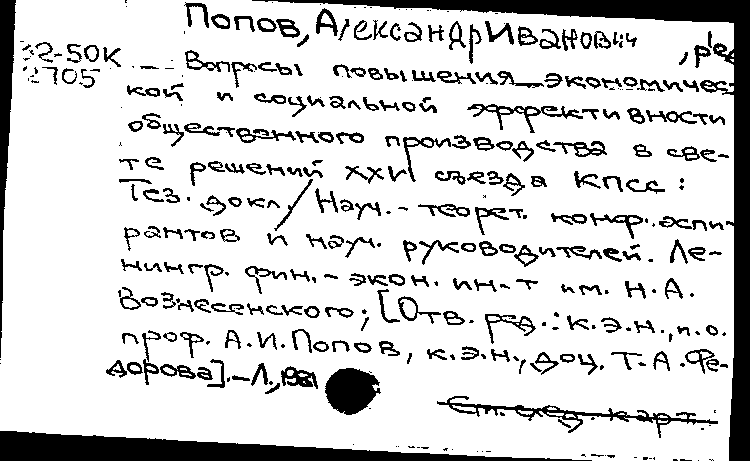 Попов, Александр Иванович, ред
32-50К
2705
Вопросы повышения экономичес
кой и социальной эффективности
общественного производства в све-
те решений XXVI съезда КПСС:
Тез. докл./ Науч.- теорет. конф. аспи-
рантов и науч. руководителей. Ле-
нингр. фин.- экон. ин-т им. Н.А.
Вознесенского; [Отв. ред.: к.э.н., и.о.
проф. А.И.Попов, к.э.н., доц. Т.А.Фе-
дорова].-Л., 1981
См. след. карт.